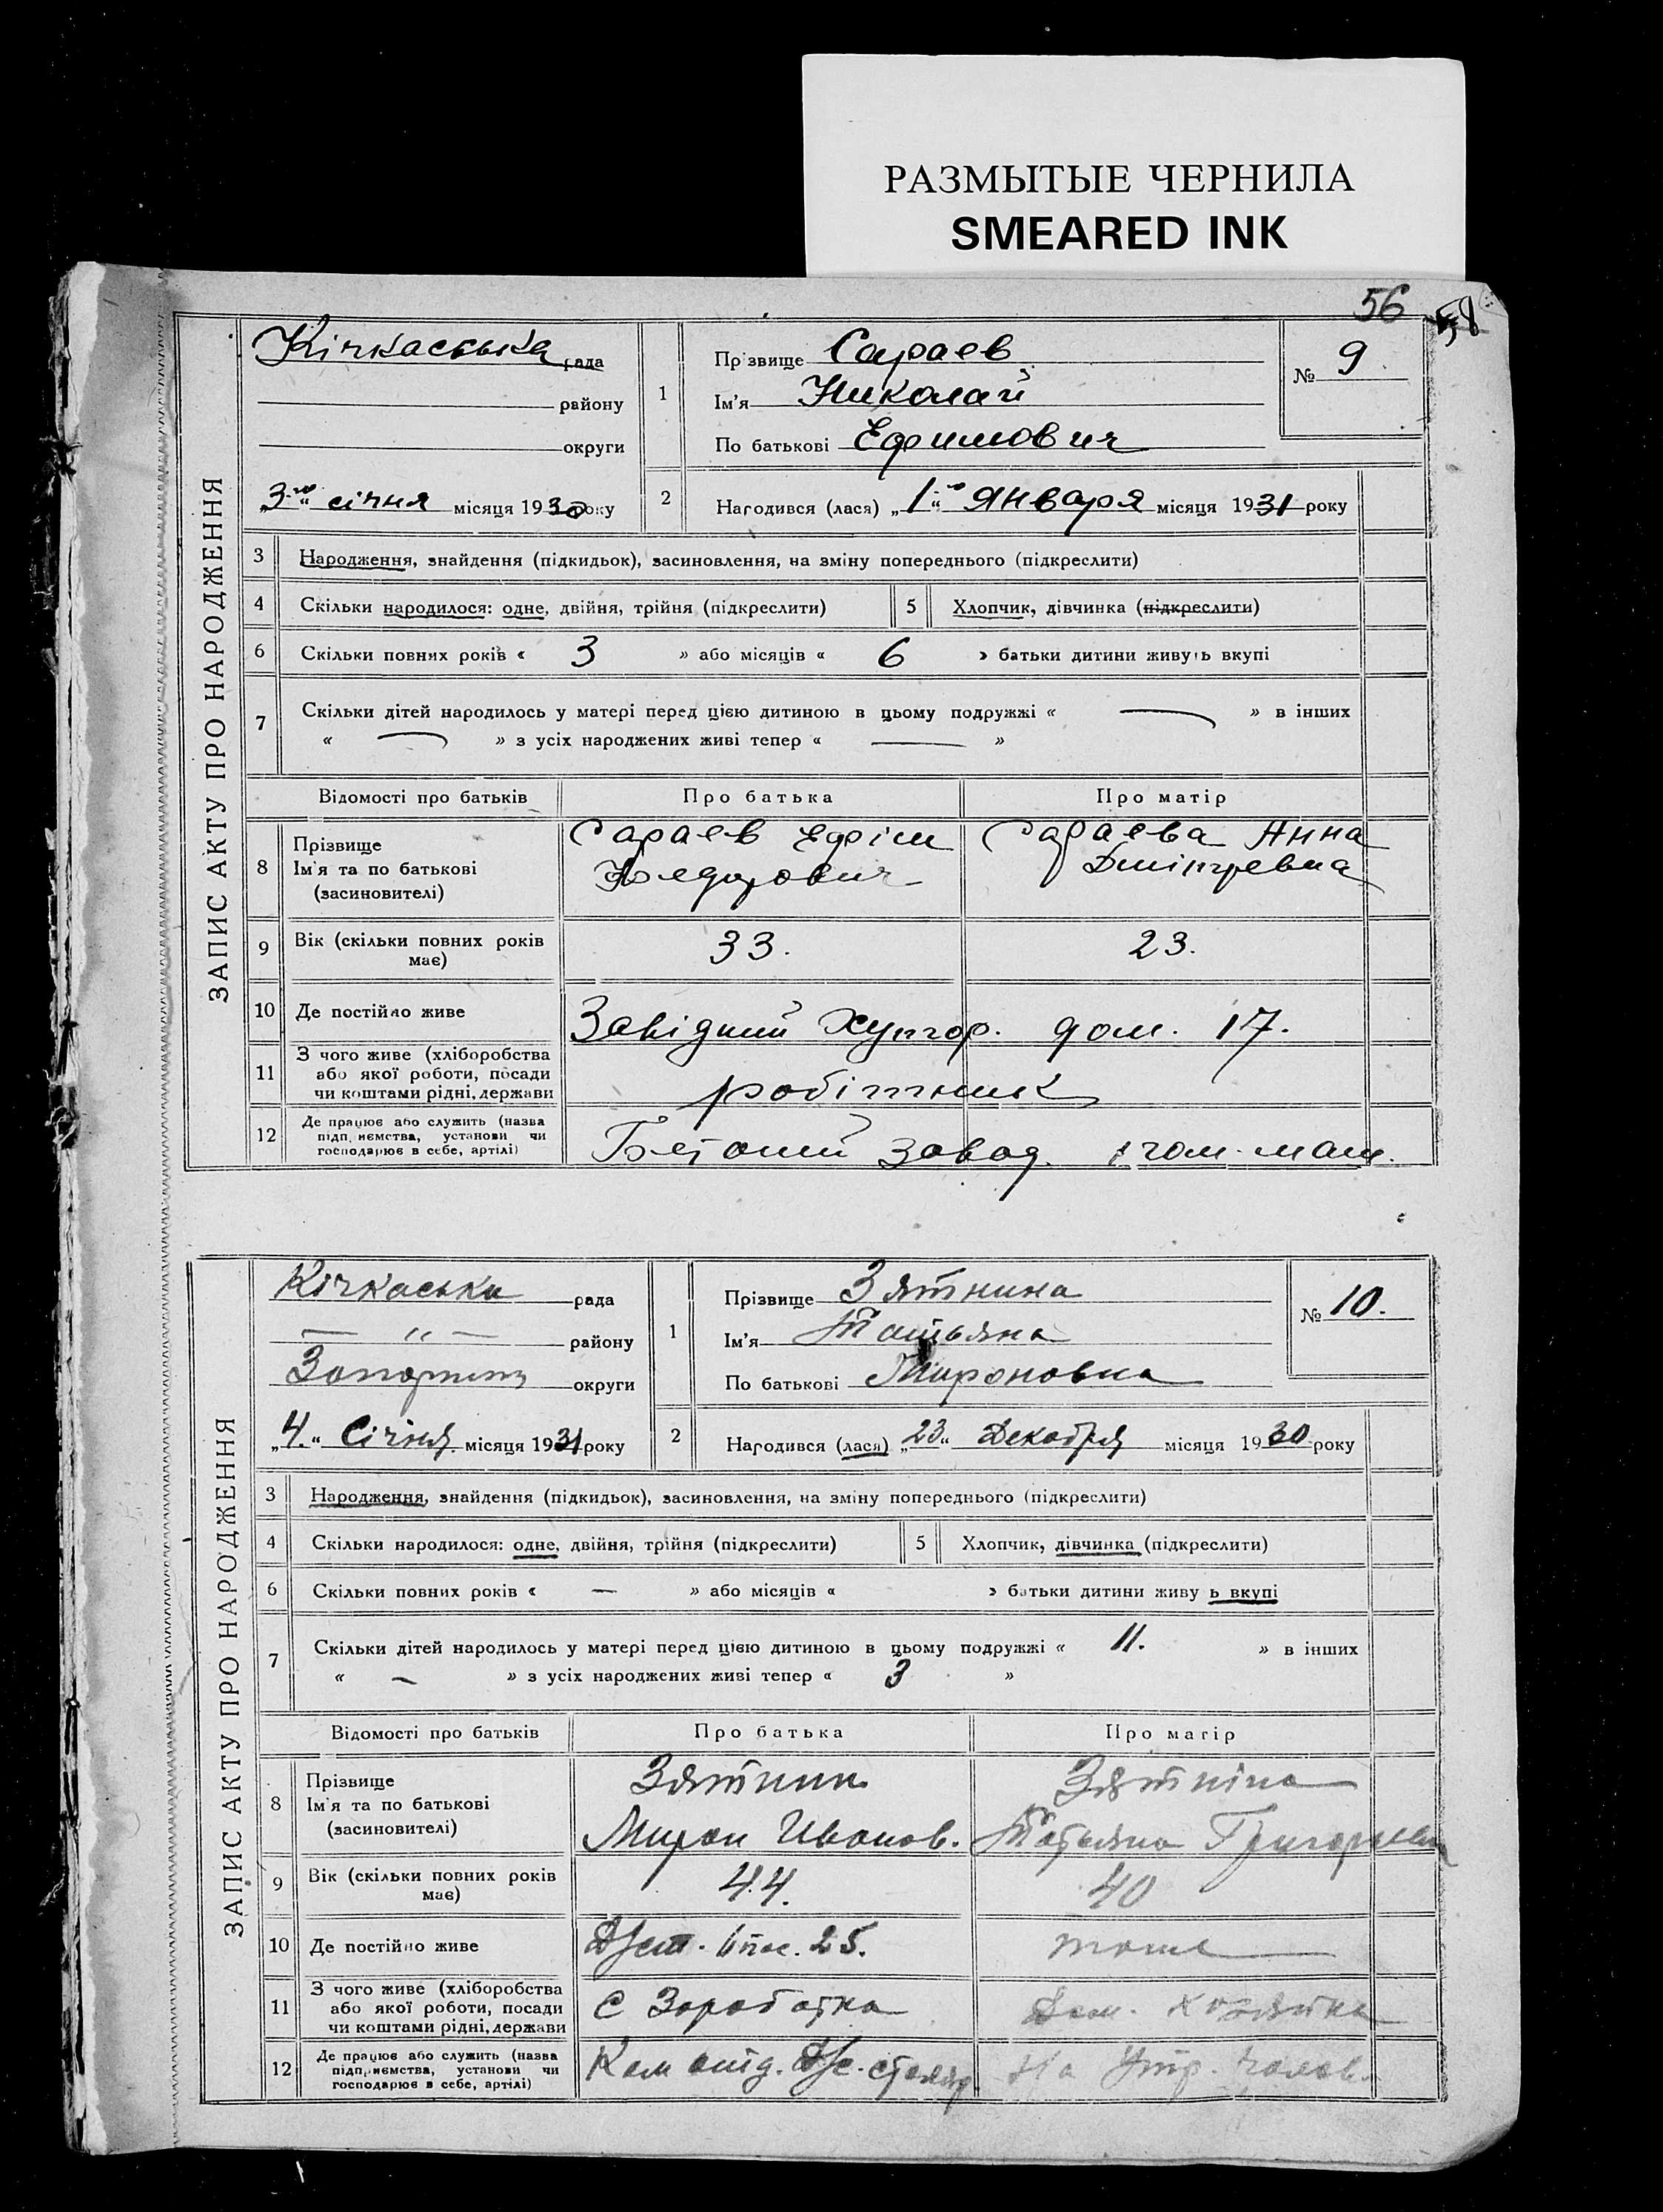 РАЗМЫТЫЕ ЧЕРНИЛА
SMEARED INK
56 58
ЗАПИС АКТУ ПРО НАРОДЖЕННЯ
Кічкаська рада
району
округи
3-го січня місяця 1930 року
1 Прізвище Сараев
Ім'я Николай
По батькові Ефимович
№ 9
2 Народився (лася) „1-го“ Января місяця 1931 року
3 Народження, знайдення (підкидьок), засиновлення, на зміну попереднього (підкреслити)
4 Скільки народилося: одне, двійня, трійня (підкреслити) 5 Хлопчик, дівчинка (підкреслити)
6 Скільки повних років « 3 » або місяців « 6 » батьки дитини живуть вкупі
7 Скільки дітей народилось у матері перед цією дитиною в цьому подружжі « — » в інших
« — » з усіх народжених живі тепер « — »
Відомості про батьків Про батька Про матір
8 Прізвище
Ім'я та по батькові
(засиновителі)
Сараев Ефім
Федорович
Сараева Анна
Дмітревна
9 Вік (скільки повних років
має)
33. 23.
10 Де постійно живе
Західний Хутор. дом. 17.
11 З чого живе (хліборобства
або якої роботи, посади
чи коштами рідні, держави
робітник
12 Де працює або служить (назва
підприємства, установи чи
господарює в себе, артілі)
Бетоний завод.
ЗАПИС АКТУ ПРО НАРОДЖЕННЯ
Кічкаська рада
— " — району
округи
„4.“ Січня місяця 1931 року
1 Прізвище Зятнина
Ім'я Татьяна
По батькові Мироновна
№ 10.
2 Народився (лася) „23“ Декабря місяця 1930 року
3 Народження, знайдення (підкидьок), засиновлення, на зміну попереднього (підкреслити)
4 Скільки народилося: одне, двійня, трійня (підкреслити) 5 Хлопчик, дівчинка (підкреслити)
6 Скільки повних років « — » або місяців « » батьки дитини живуть вкупі
7 Скільки дітей народилось у матері перед цією дитиною в цьому подружжі « 11. » в інших
« — » з усіх народжених живі тепер « 3 »
Відомості про батьків Про батька Про матір
8 Прізвище
Ім'я та по батькові
(засиновителі)
Зятнин
Мирон Иванов.
Зятніна
Татьяна Григорьевн
9 Вік (скільки повних років
має)
44. 40
10 Де постійно живе
6 пос. 25. тоже
11 З чого живе (хліборобства
або якої роботи, посади
чи коштами рідні, держави
С Заработка Дом. хозяйка
12 Де працює або служить (назва
підприємства, установи чи
господарює в себе, артілі)
столяр. На Утр чолов.